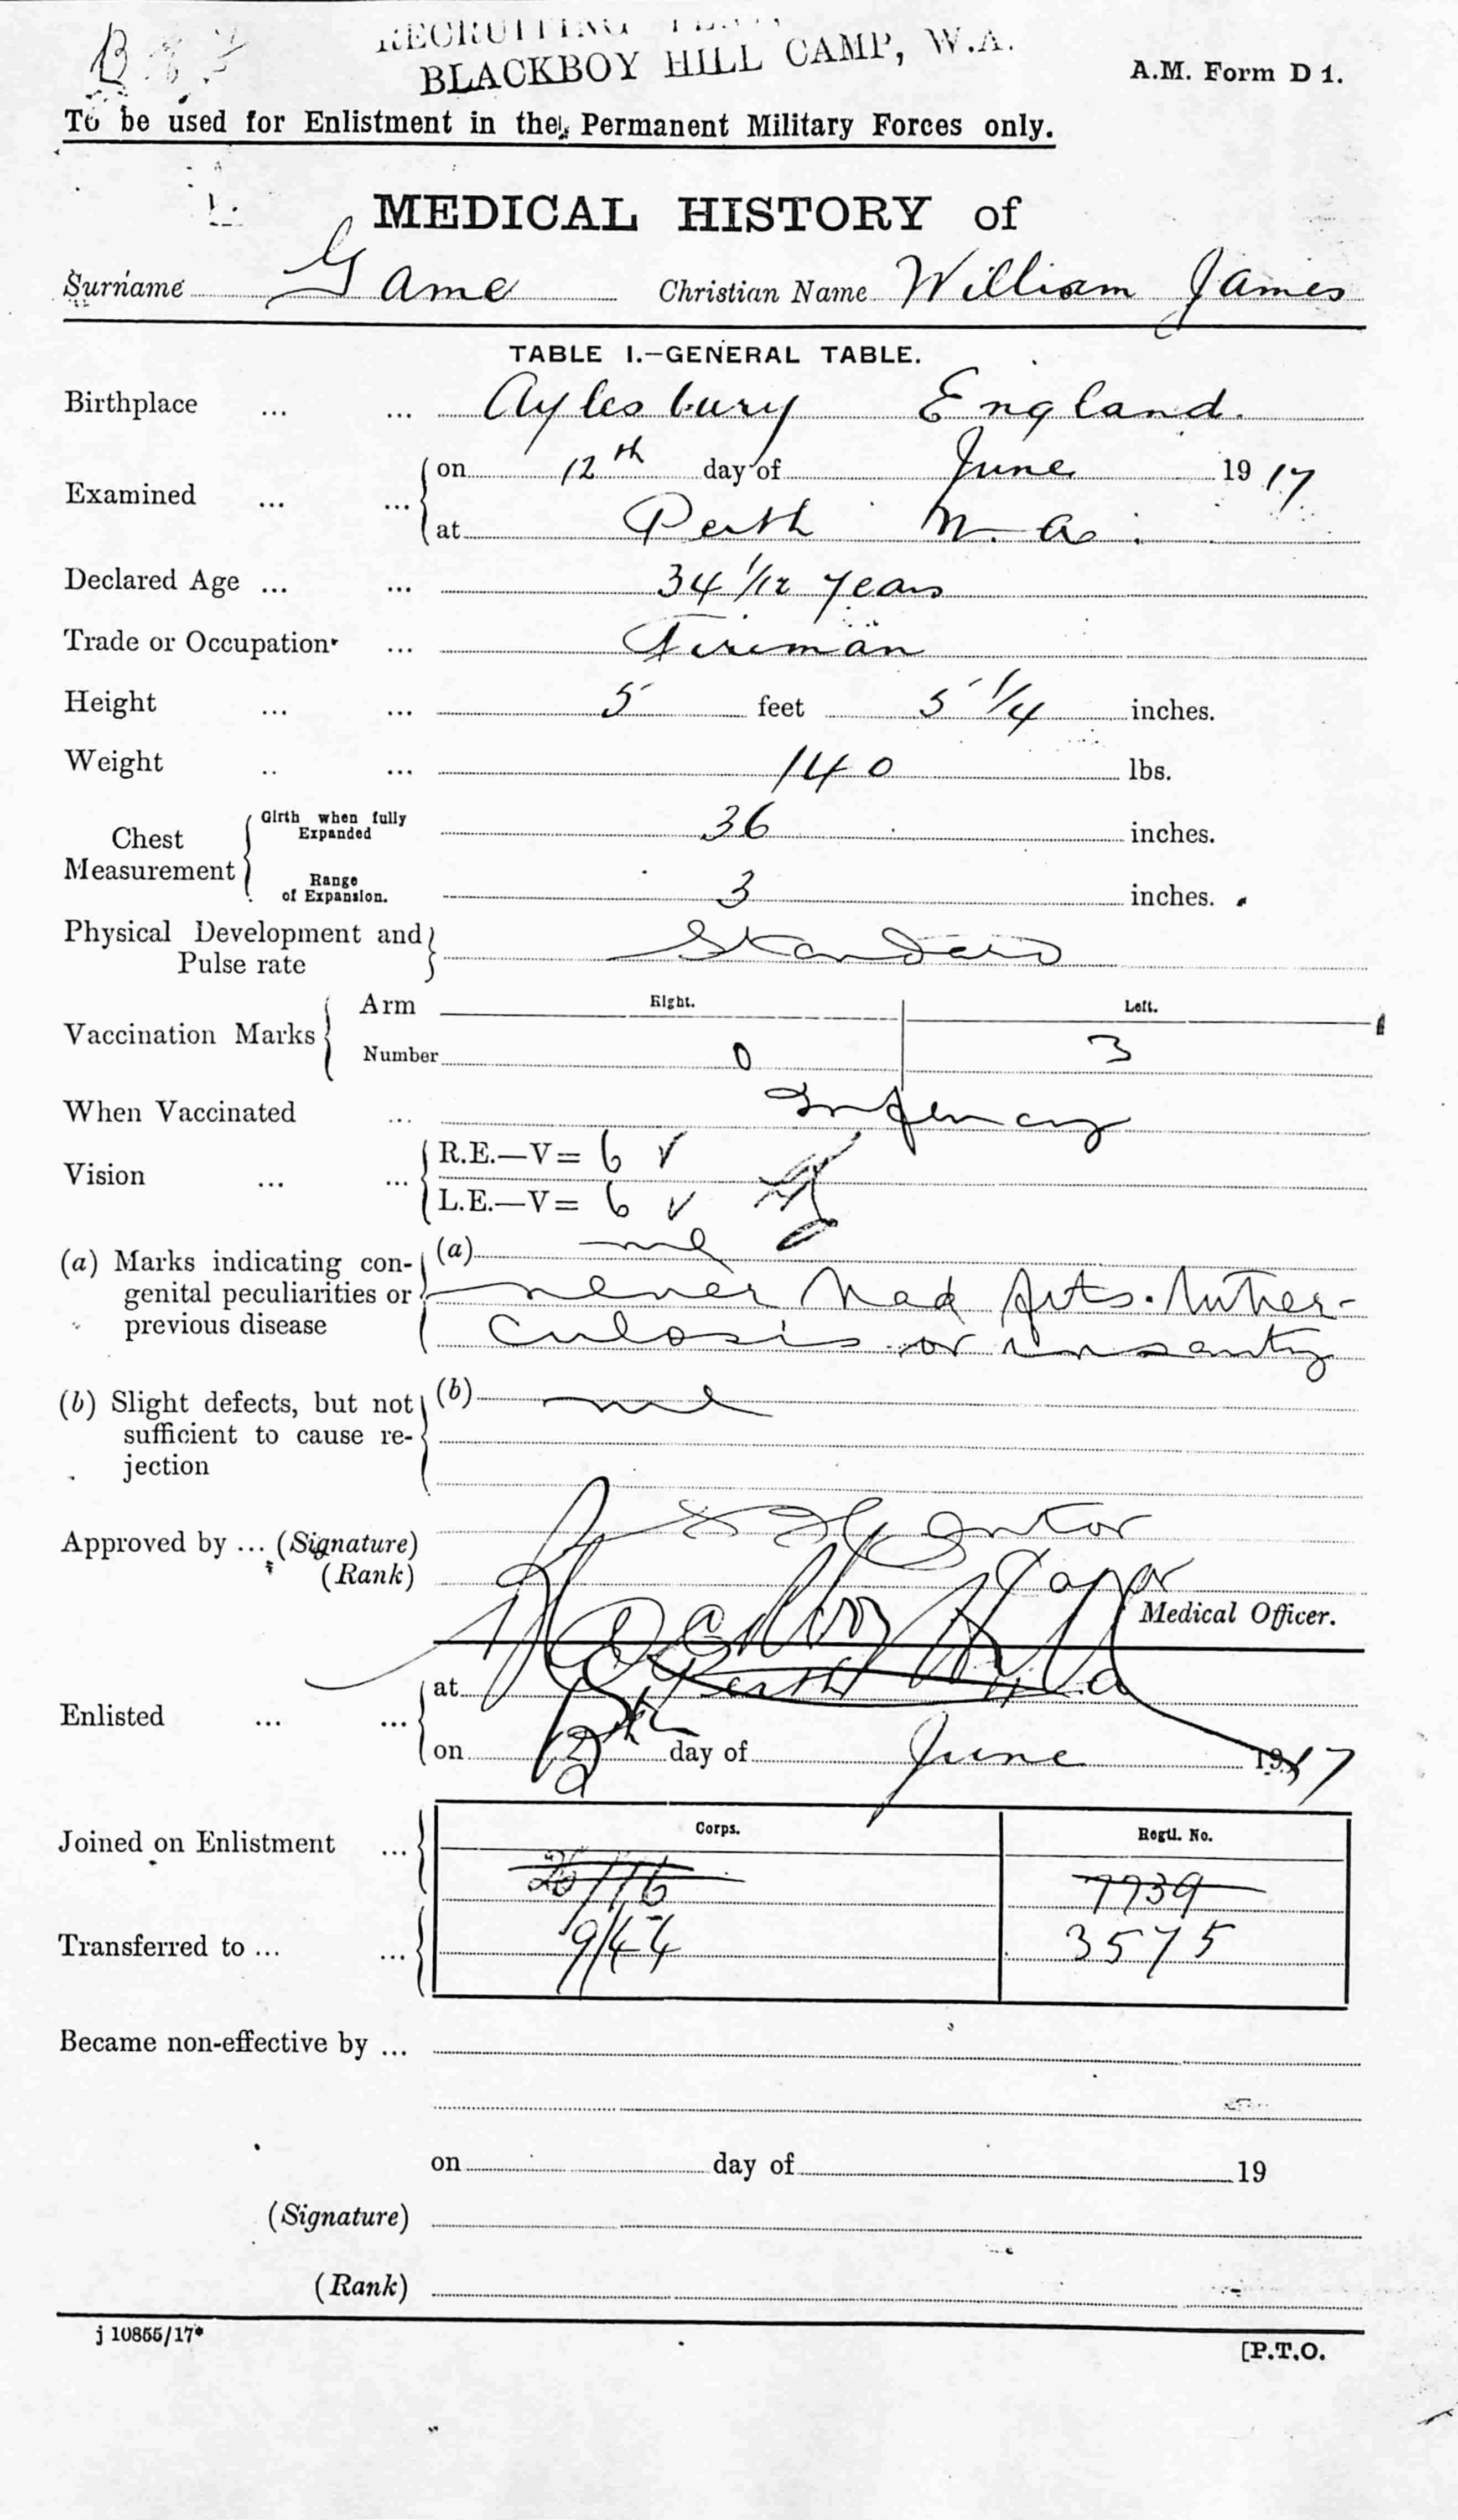 BLACKBOY HILL CAMP, W.A.
A.M. Form D 1.
To be used for Enlistment in the Permanent Military Forces only.
MEDICAL HISTORY of
Surname Game Christian Name William James
TABLE I.—GENERAL TABLE.
Birthplace ... ... Aylesbury England.
Examined ... ... on 12th day of June 1917
at Perth W.A.
Declared Age ... ... 34 1/12 years
Trade or Occupation ... Fireman
Height ... ... 5 feet 5 1/4 inches.
Weight .. ... 140 lbs.
Chest Measurement
Girth when fully Expanded 36 inches.
Range of Expansion. 3 inches.
Physical Development and Pulse rate Standard
Vaccination Marks Arm Right. Left.
Number 0 3
When Vaccinated ... Infancy
Vision ... ... R.E.—V= 6
L.E.—V= 6
(a) Marks indicating con- (a) nil
genital peculiarities or never had fits. tuber-
previous disease culosis or insanity
(b) Slight defects, but not (b) nil
sufficient to cause re-
jection
Approved by ... (Signature)
(Rank) Capt
Medical Officer.
Enlisted ... ... at Blackboy Hill Perth W.A
on 12th day of June 1917
Corps. Regtl. No.
Joined on Enlistment ... 26/16 7739
Transferred to ... ... 9/44 3575
Became non-effective by ...
on day of 19
(Signature)
(Rank)
j 10855/17*
[P.T.O.